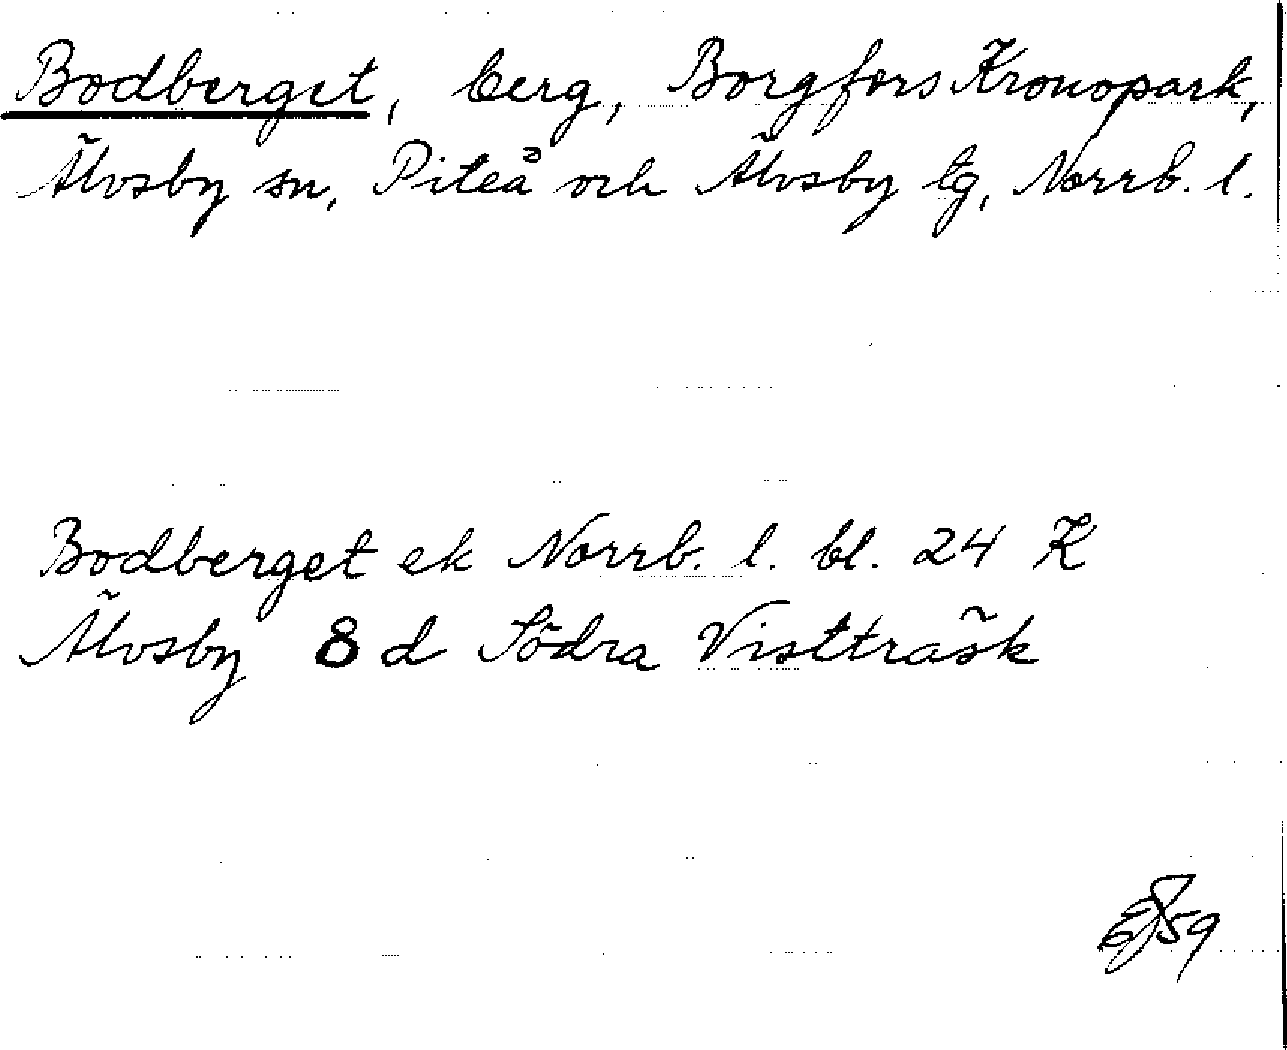 Bodberget, berg, Borgfors Kronopark,
Älvsby sn, Piteå och Älvsby tg, Norrb. l.
Bodberget ek Norrb. l. bl. 24 K
Älvsby 8 d Södra Vistträsk
59